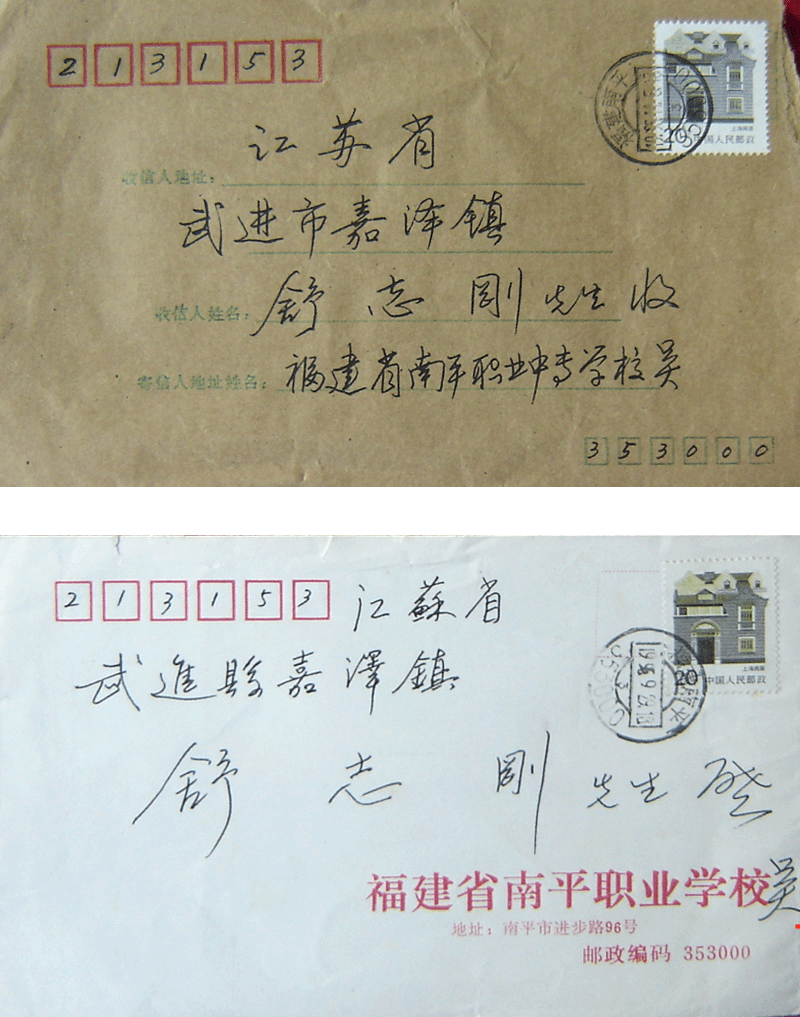 213153
上海民居
20中国人民邮政
江苏省
收信人地址：
武进市嘉泽镇
收信人姓名：舒志刚先生收
寄信人地址姓名：福建省南平职业中专学校吴
353000
213153 江蘇省
武進縣嘉澤鎮
上海民居
20中国人民邮政
舒志刚先生啓
福建省南平职业学校吴
地址：南平市进步路96号
邮政编码 353000